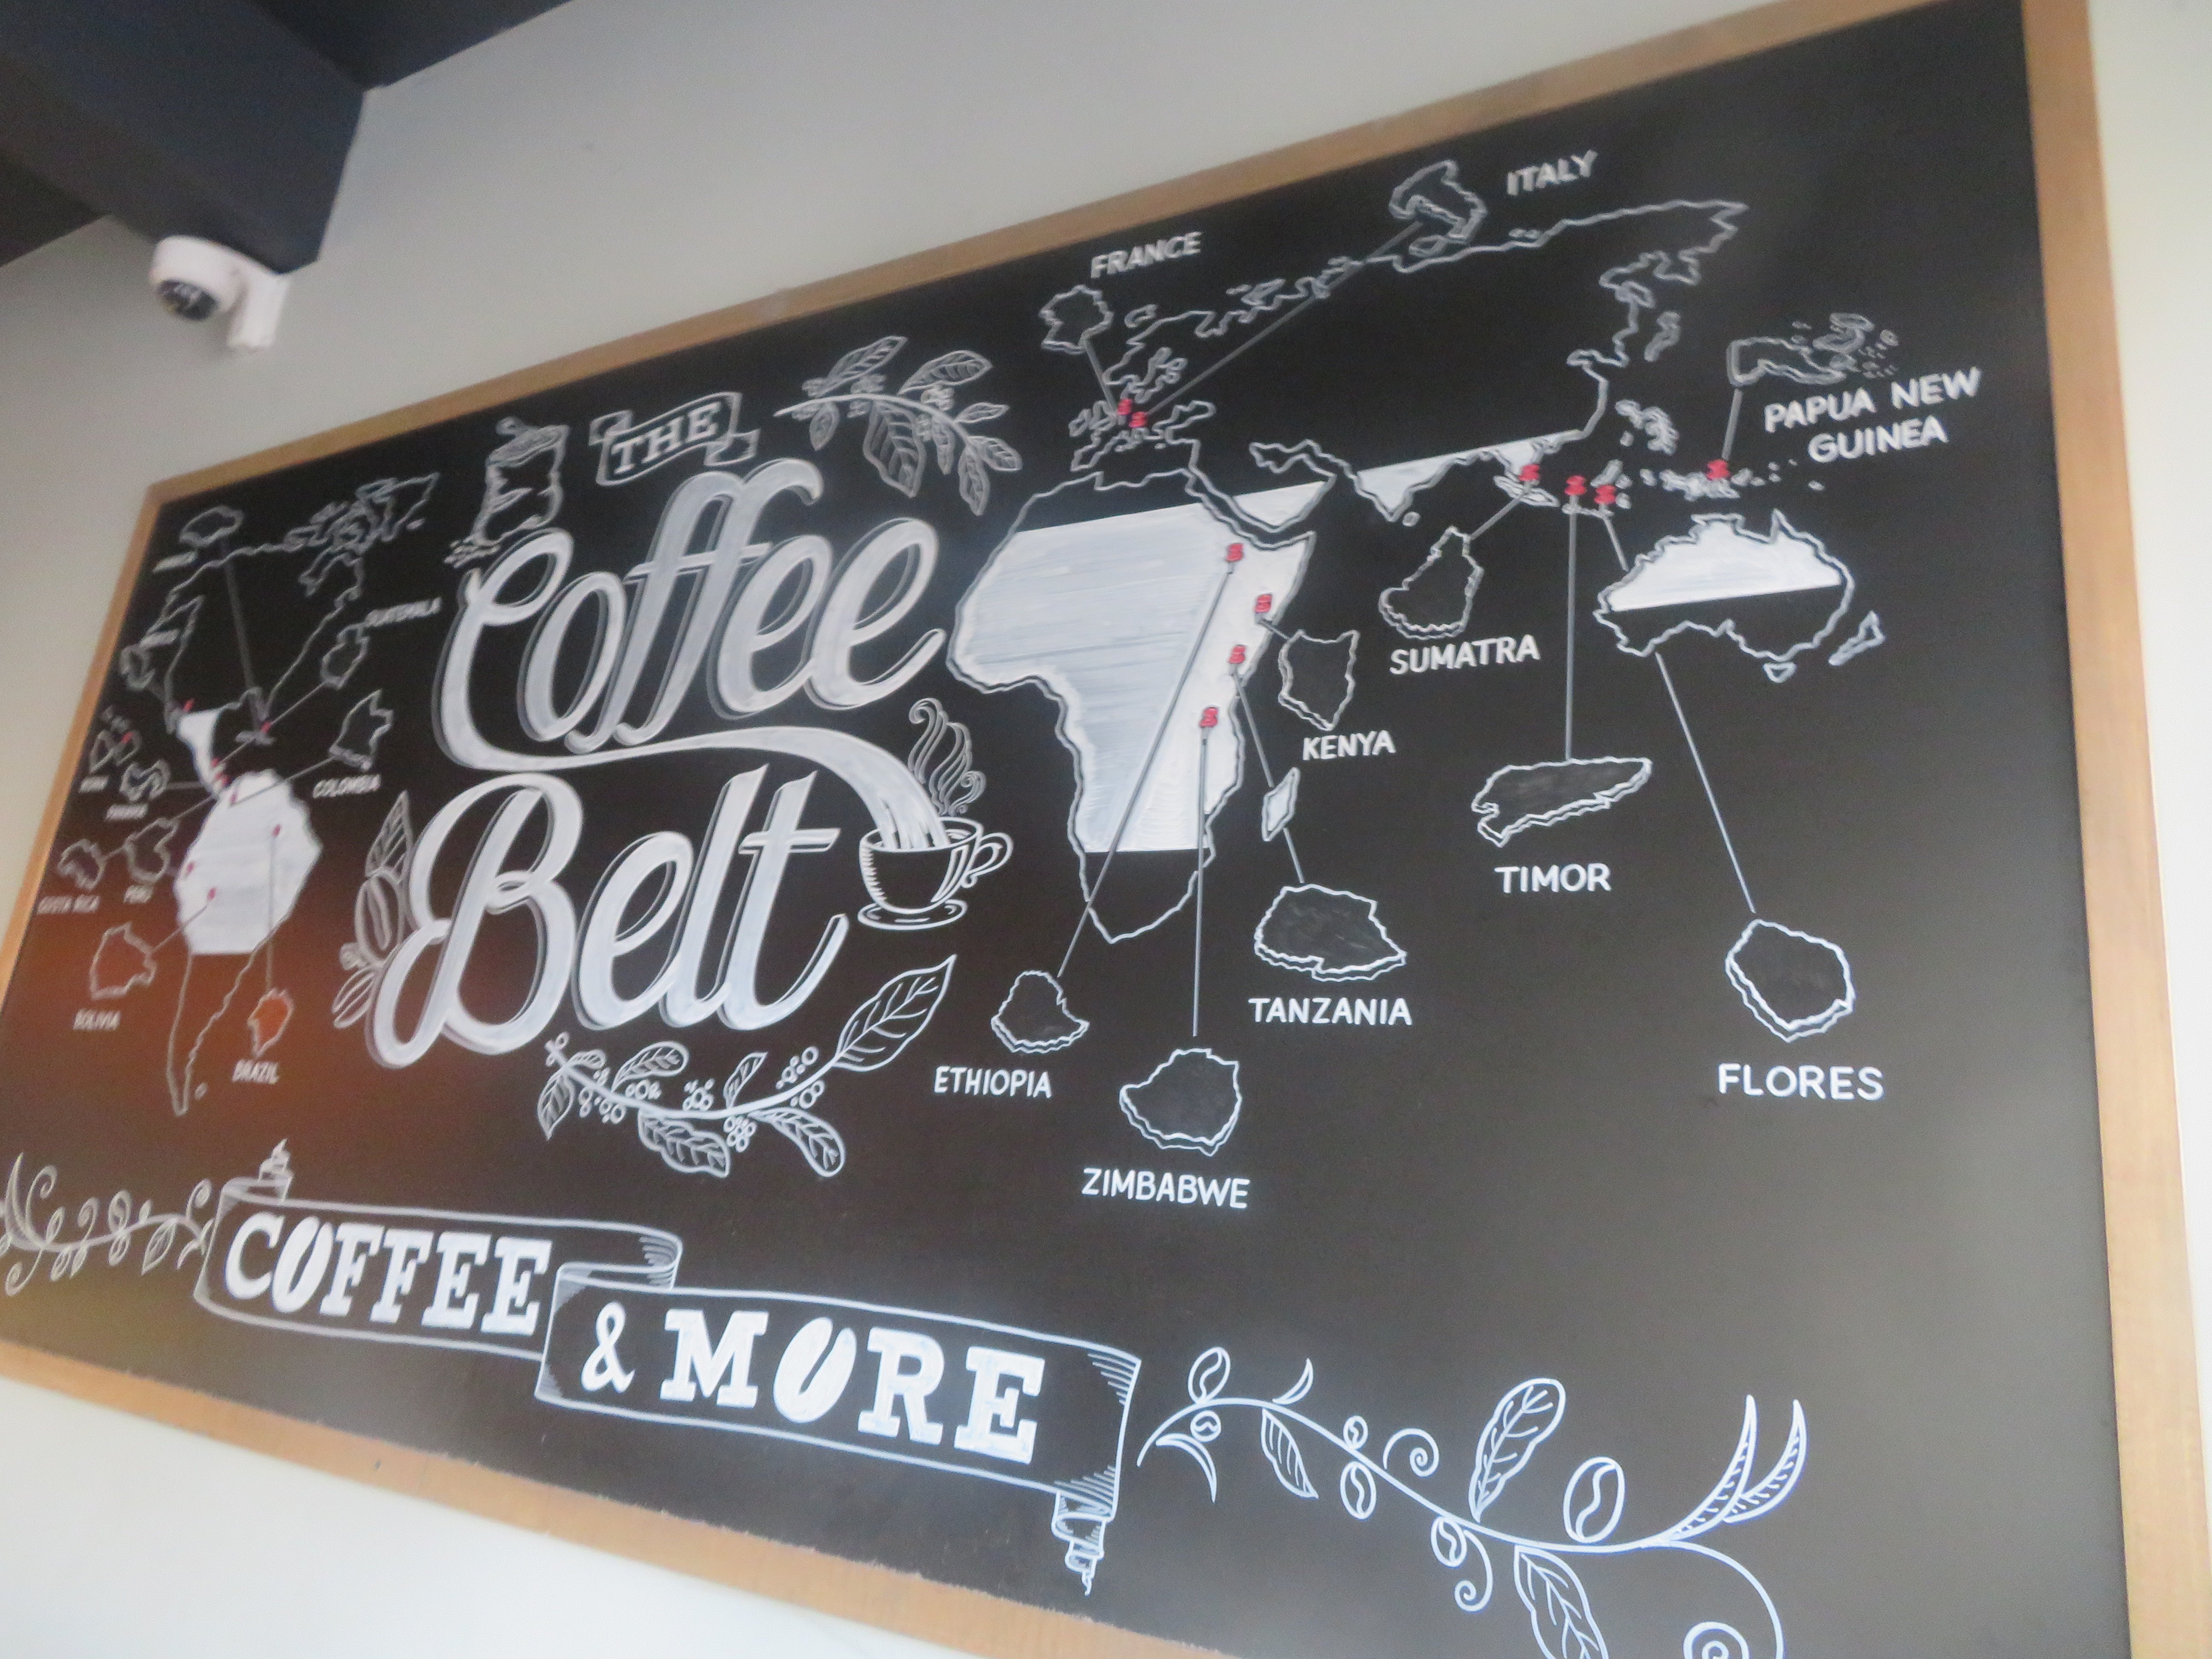 ITALY
FRANCE
PAPUA NEW
GUINEA
THE
Coffee
Belt
GUATEMALA
COLOMBIA
PANAMA
COSTA RICA
PERU
BOLIVIA
BRAZIL
SUMATRA
KENYA
TIMOR
TANZANIA
ETHIOPIA
FLORES
ZIMBABWE
COFFEE
& MORE